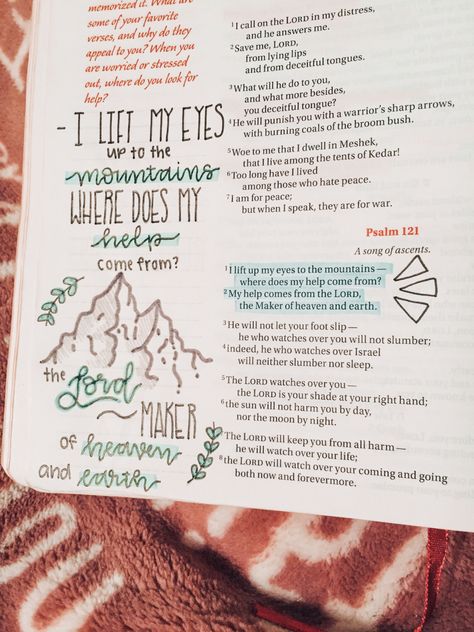 memorized it. What are
some of your favorite
verses, and why do they
appeal to you? When you
are worried or stressed
out, where do you look for
help?
- I LIFT MY EYES
up to the
mountains
WHERE DOES MY
help
come from?
the Lord
~ MAKER
of heaven
and earth
1 I call on the LORD in my distress,
and he answers me.
2 Save me, LORD,
from lying lips
and from deceitful tongues.
3 What will he do to you,
and what more besides,
you deceitful tongue?
4 He will punish you with a warrior's sharp arrows,
with burning coals of the broom bush.
5 Woe to me that I dwell in Meshek,
that I live among the tents of Kedar!
6 Too long have I lived
among those who hate peace.
7 I am for peace;
but when I speak, they are for war.
Psalm 121
A song of ascents.
1 I lift up my eyes to the mountains —
where does my help come from?
2 My help comes from the LORD,
the Maker of heaven and earth.
3 He will not let your foot slip —
he who watches over you will not slumber;
4 indeed, he who watches over Israel
will neither slumber nor sleep.
5 The LORD watches over you —
the LORD is your shade at your right hand;
6 the sun will not harm you by day,
nor the moon by night.
7 The LORD will keep you from all harm —
he will watch over your life;
8 the LORD will watch over your coming and going
both now and forevermore.